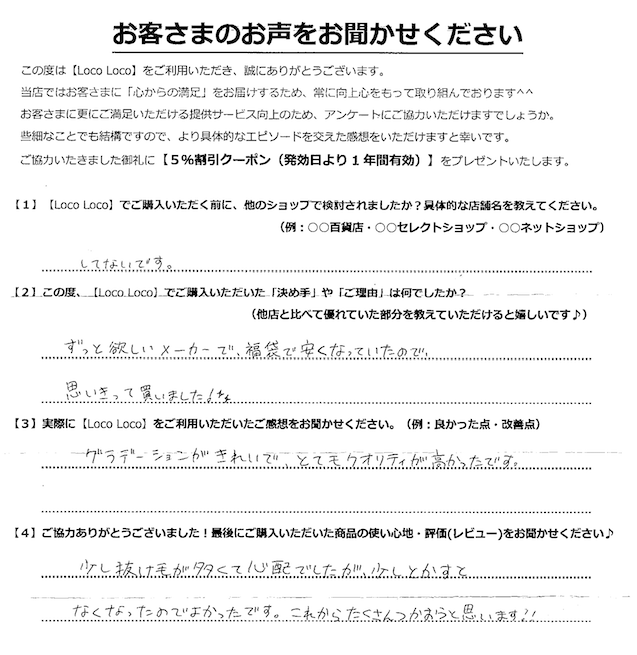 お客さまのお声をお聞かせください
この度は【Loco Loco】をご利用いただき、誠にありがとうございます。
当店ではお客さまに「心からの満足」をお届けするため、常に向上心をもって取り組んでおります^^
お客さまに更にご満足いただける提供サービス向上のため、アンケートにご協力いただけますでしょうか。
些細なことでも結構ですので、より具体的なエピソードを交えた感想をいただけますと幸いです。
ご協力いたきました御礼に【5%割引クーポン（発効日より1年間有効）】をプレゼントいたします。
【1】【Loco Loco】でご購入いただく前に、他のショップで検討されましたか？具体的な店舗名を教えてください。
（例：○○百貨店・○○セレクトショップ・○○ネットショップ）
してないです。
【2】この度、【Loco Loco】でご購入いただいた「決め手」や「ご理由」は何でしたか？
（他店と比べて優れていた部分を教えていただけると嬉しいです♪）
ずっと欲しいメーカーで、福袋で安くなっていたので、
思いきって買いました！
【3】実際に【Loco Loco】をご利用いただいたご感想をお聞かせください。（例：良かった点・改善点）
グラデーションがきれいで、とてもクオリティが高かったです。
【4】ご協力ありがとうございました！最後にご購入いただいた商品の使い心地・評価(レビュー)をお聞かせください♪
少し抜け毛が多くて心配でしたが、少しとかすと
なくなったのでよかったです。これからたくさんつかおうと思います!!